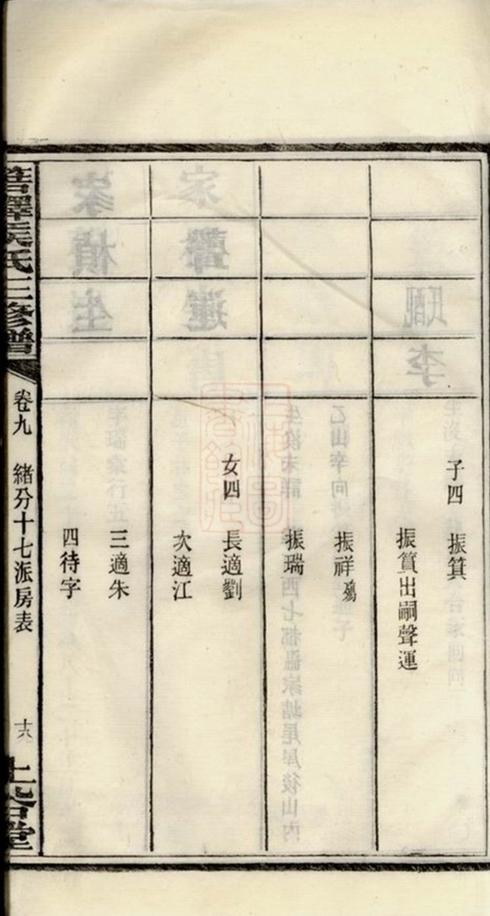 子四 振箕
振篔出嗣聲運
振祥殤
振瑞
女四 長適劉
次適江
三適朱
四待字
氏三修譜
卷九 緒分十七派房表
十六